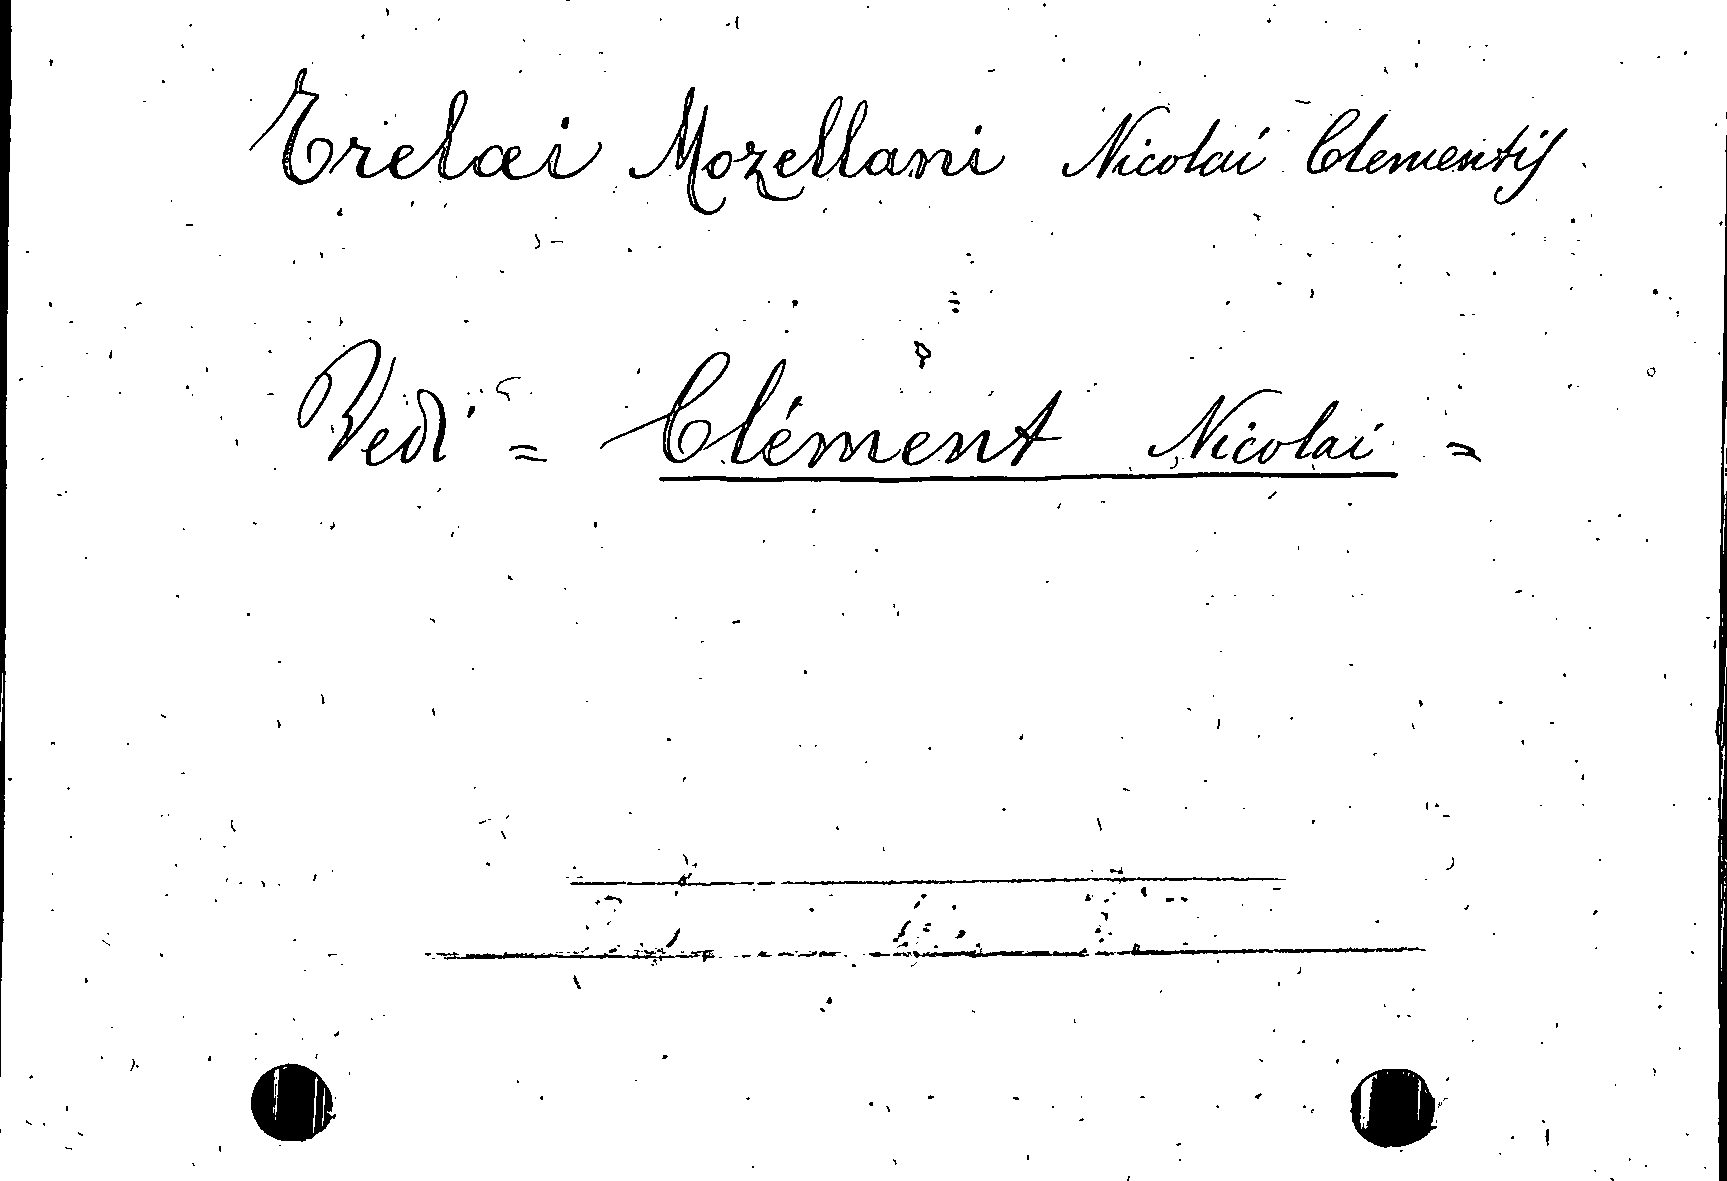 Trelaei Mozellani Nicolai Clementij
Vedi = Clément Nicolai =